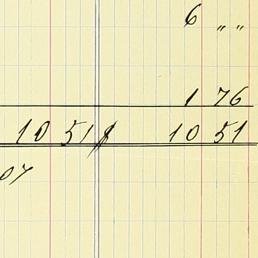 6 " "
1 76
10 51 10 51
07